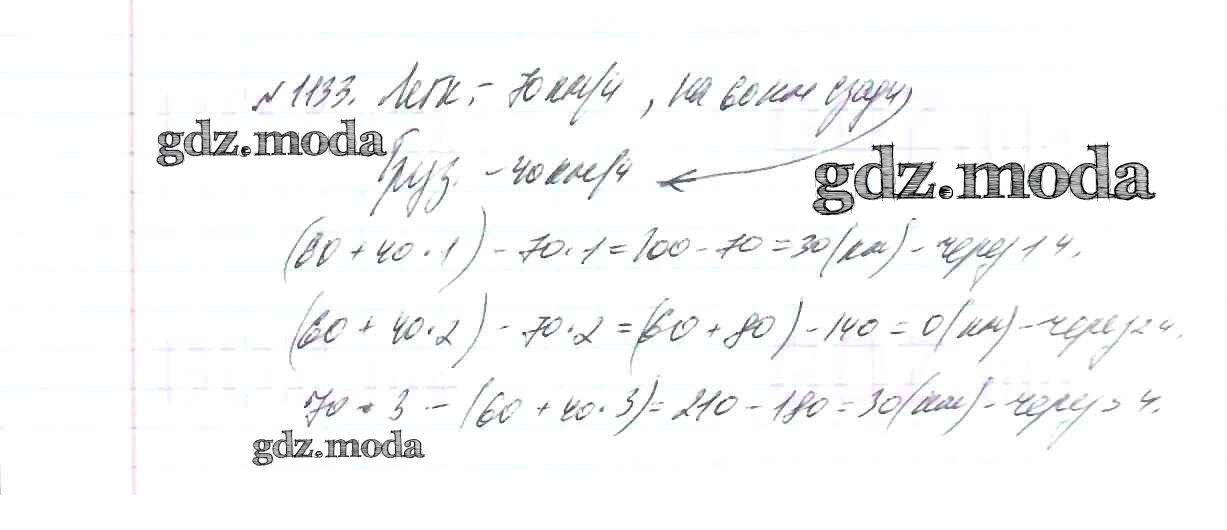 № 1133. Легк. - 70 км/ч, на 60 км сзади
gdz.moda
Груз. - 40 км/ч
gdz.moda
(60 + 40·1) - 70·1 = 100 - 70 = 30 (км) - через 1 ч.
(60 + 40·2) - 70·2 = (60 + 80) - 140 = 0 (км) - через 2 ч.
70·3 - (60 + 40·3) = 210 - 180 = 30 (км) - через 3 ч.
gdz.moda